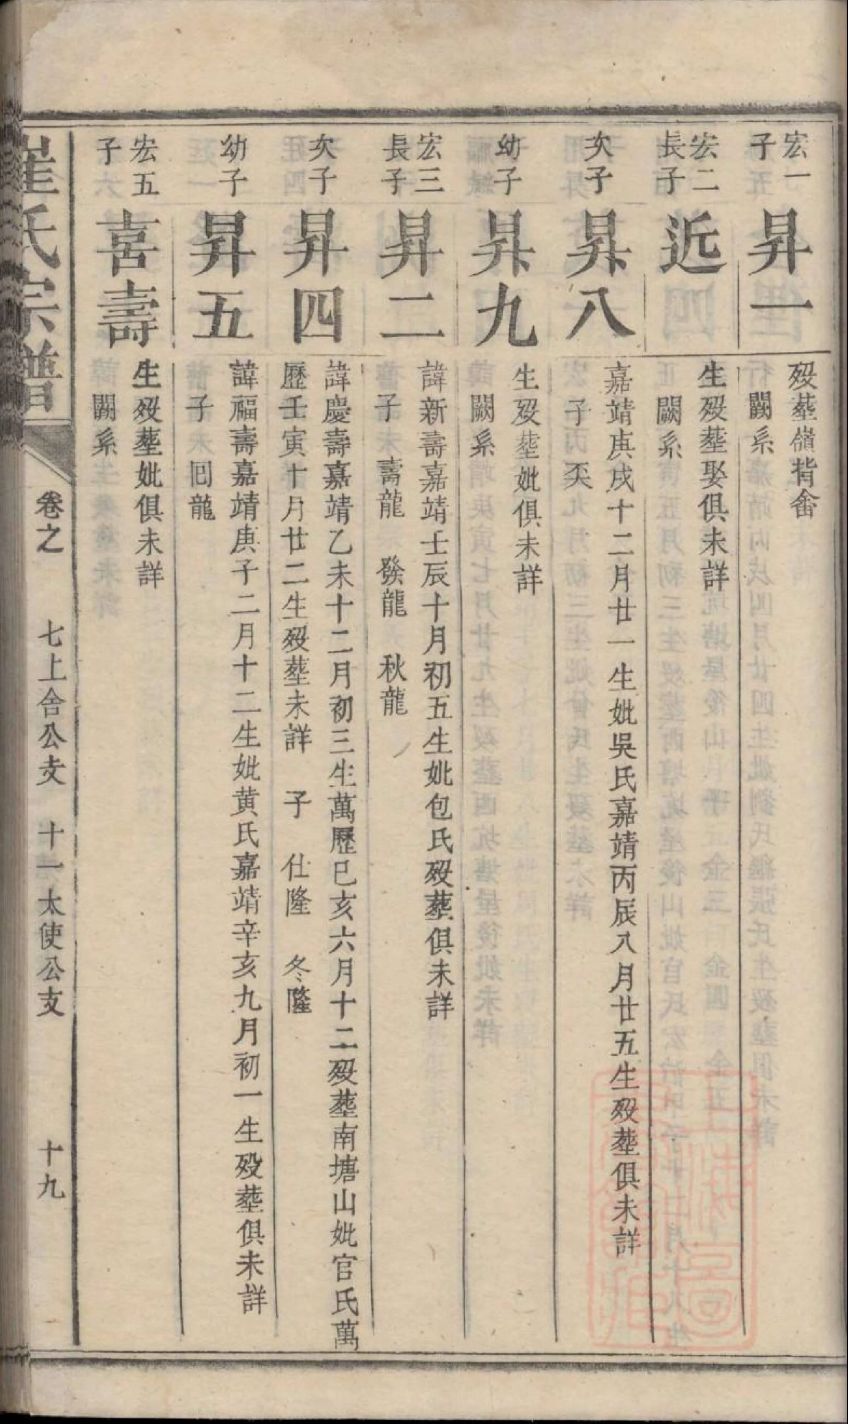 宏一
子
昇一
歿葬嶺背畬
闕系
宏二
長子
近四
生歿葬娶俱未詳
闕系
次子
昇八
嘉靖庚戌十二月廿一生妣吳氏嘉靖丙辰八月廿五生歿葬俱未詳
子 天
幼子
昇九
生歿葬妣俱未詳
闕系
宏三
長子
昇二
諱新壽嘉靖壬辰十月初五生妣包氏歿葬俱未詳
子 壽龍 發龍 秋龍
次子
昇四
諱慶壽嘉靖乙未十二月初三生萬歷己亥六月十二歿葬南塘山妣官氏萬
歷壬寅十月廿二生歿葬未詳 子 仕隆 冬隆
幼子
昇五
諱福壽嘉靖庚子二月十二生妣黃氏嘉靖辛亥九月初一生歿葬俱未詳
子 回龍
宏五
子
喜壽
生歿葬妣俱未詳
闕系
崔氏宗譜 卷之 七上舍公支 十一太使公支 十九